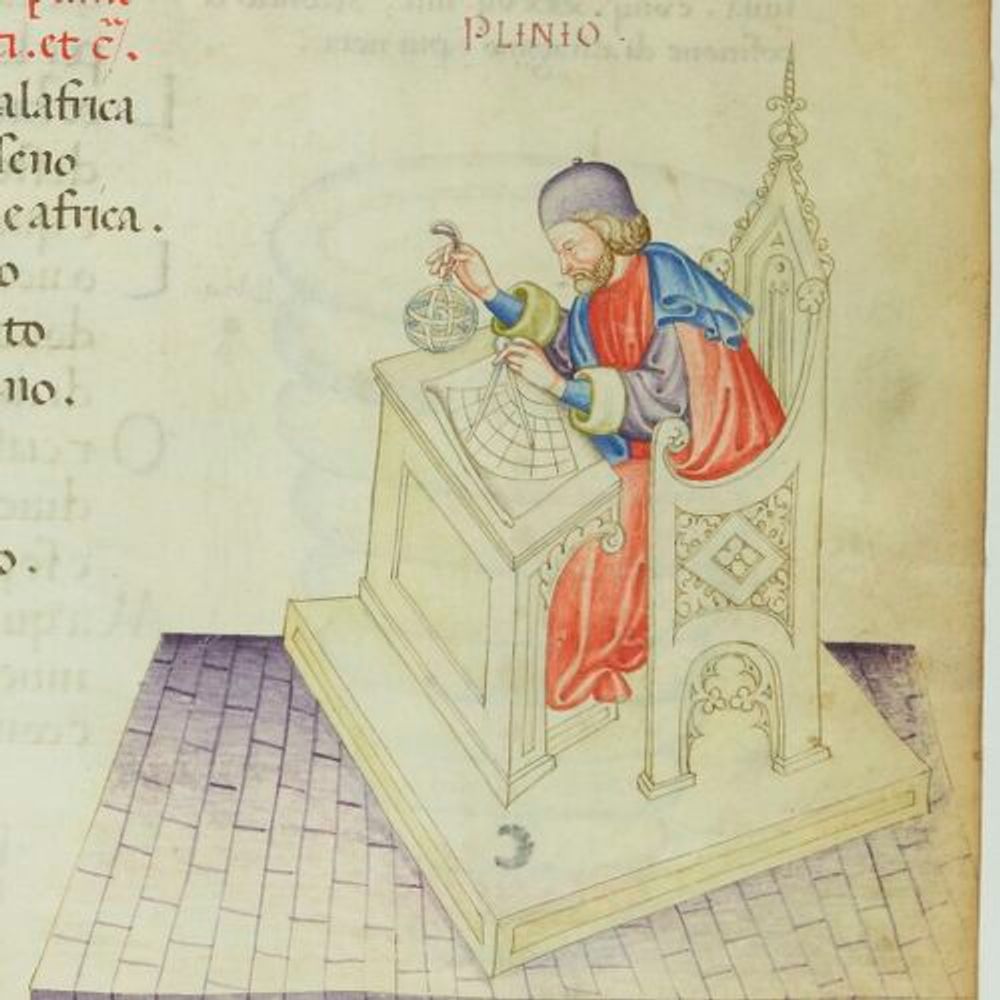 ti. et c̃.
alafrica
seno
e africa.
o
to
no.
o.
PLINIO.